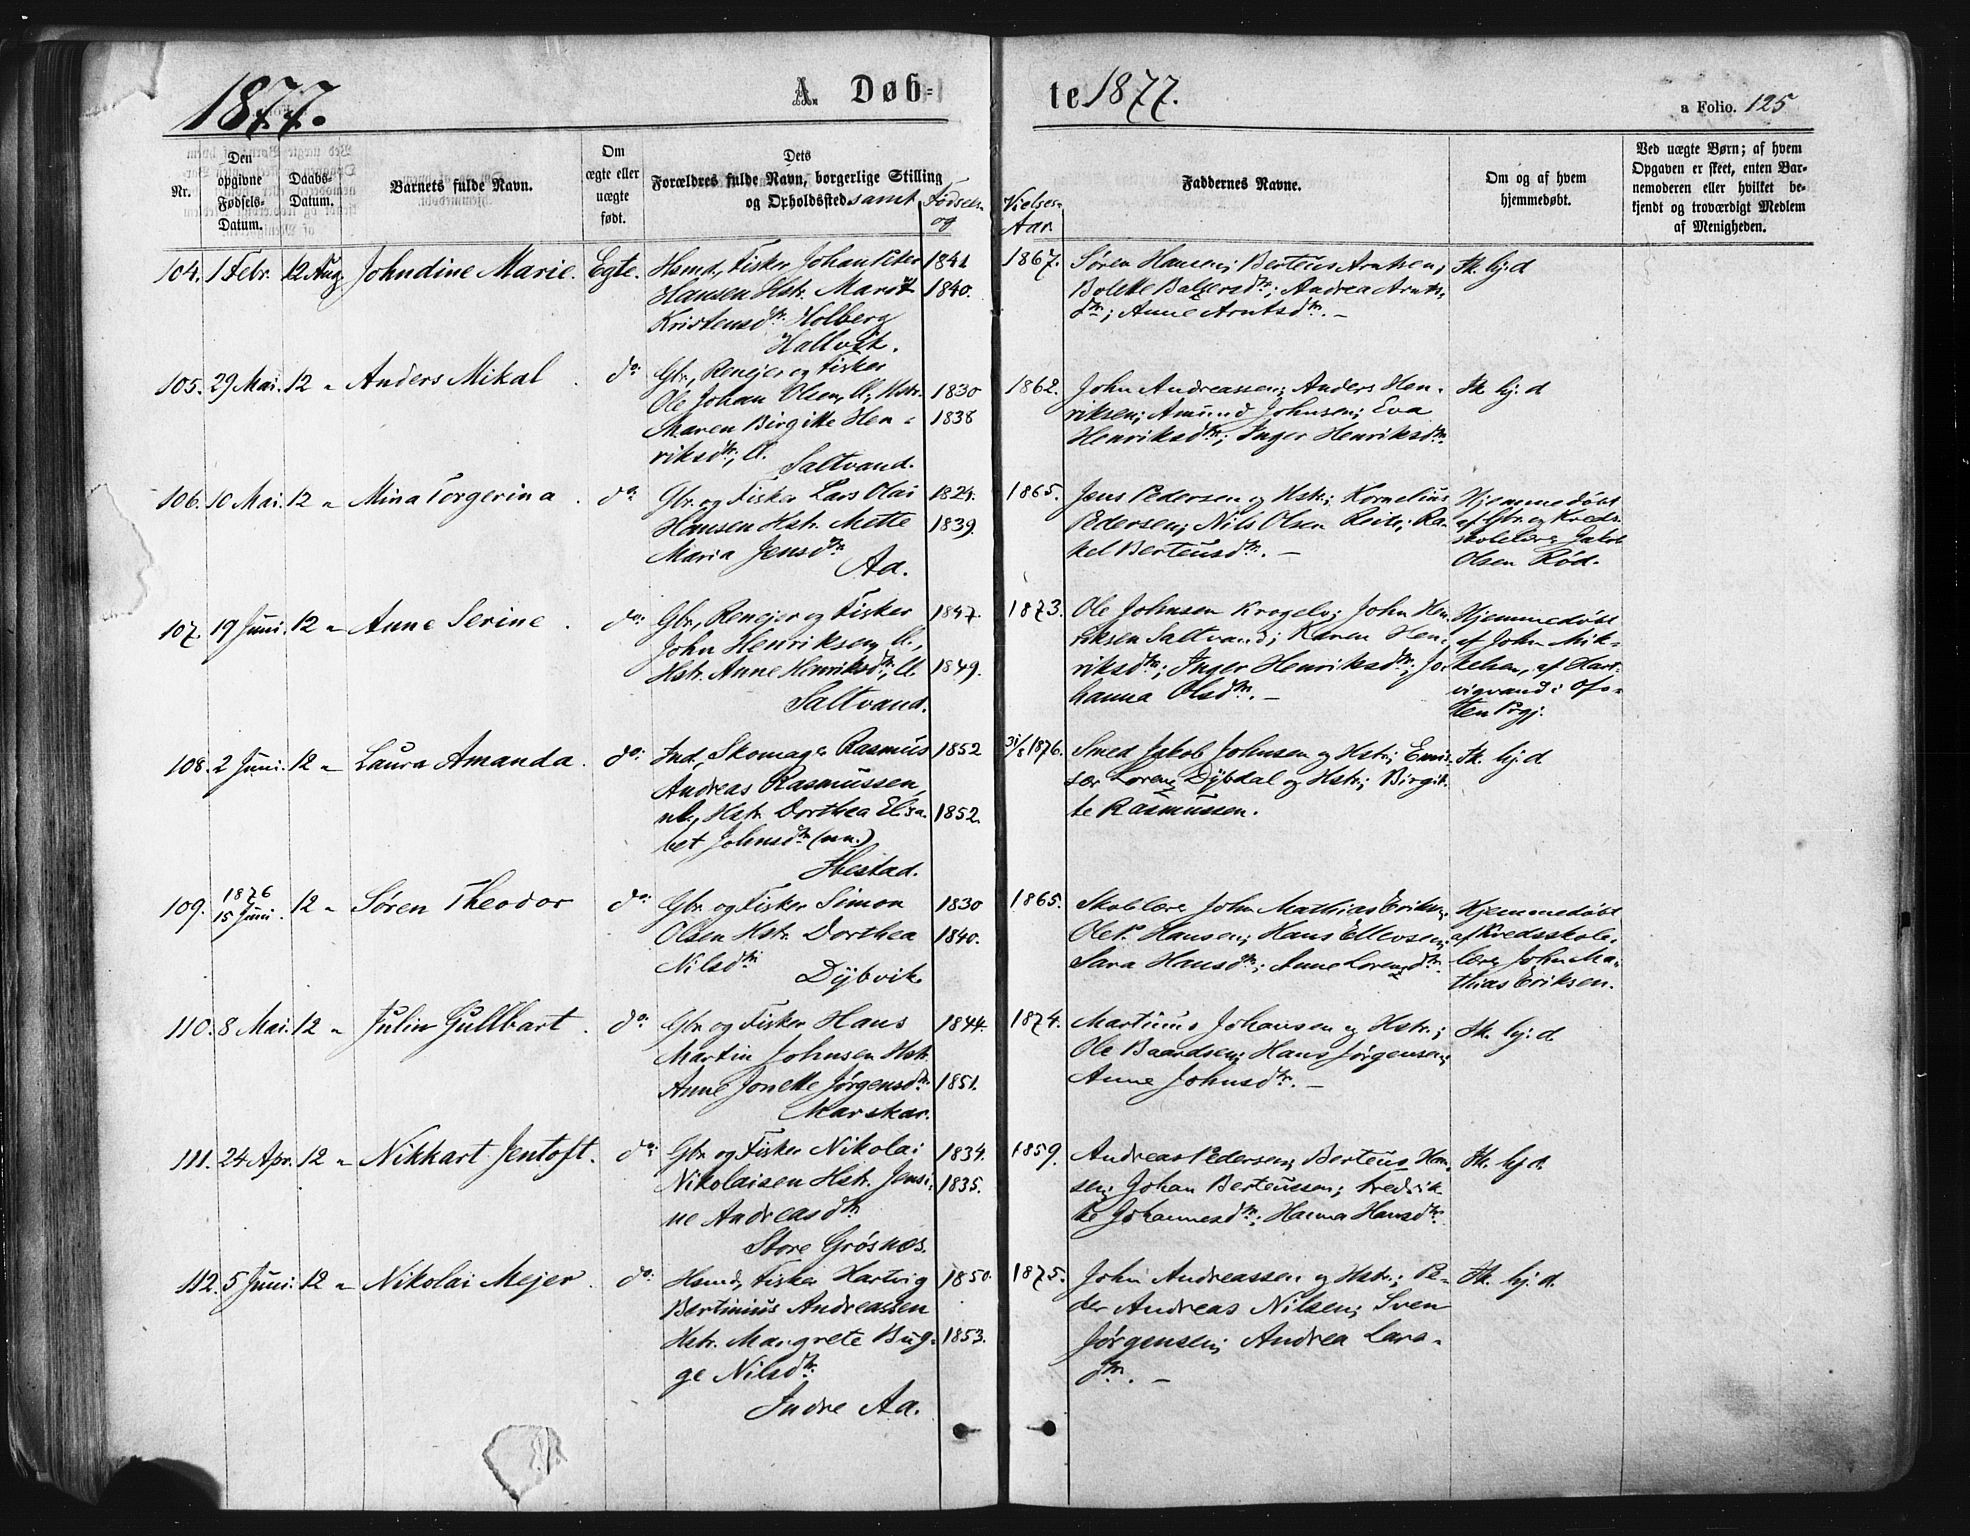 1877.
A. Døb-
te 1877.
a Folio. 125
Nr.
Den
opgivne
Fødsels-
Datum.
Daabs-
Datum.
Barnets fulde Navn.
Om
ægte eller
uægte
født.
Dets
Forældres fulde Navn, borgerlige Stilling
og Opholdssted samt Fødsels-
og
Vielses-
Aar.
Faddernes Navne.
Om og af hvem
hjemmedøbt.
Ved uægte Børn; af hvem
Opgaven er skeet, enten Bar-
nemoderen eller hvilket be-
kjendt og troværdigt Medlem
af Menigheden.
104. 1 Febr. 12 Aug. Johndine Marie. Egte. Hsmd, Fisker Johan Peter 1841
Hansen Hstr. Marit 1840.
Kristensdtr. Holberg
Hallvik.
1867. Søren Hansen; Berteus Arntsen;
Bolette Balzersdtr; Andrea Arnts-
dtr; Anne Arntsdtr. —
Ik. hj. d
105. 29 Mai. 12 " Anders Mikal. do: Gbr, Renejer og Fisker
Ole Johan Olsen, U, Hstr. 1830
Maren Birgitte Hen- 1838
riksdtr, U.
Saltvand.
1862. John Andreassen; Anders Hen-
riksen; Amund Johnsen; Eva
Henriksdtr; Inger Henriksdtr.
Ik. hj. d
106. 10 Mai. 12 " Mina Torgerina. do: Gbr. og Fisker Lars Olai 1824.
Hansen Hstr. Mette 1839.
Maria Jensdtr.
Aa.
1865. Jens Pedersen og Hstr; Kornelius
Pedersen; Nils Olsen Reite; Ra-
kel Berteusdtr. —
Hjemmedøbt
af Gbr. og Kreds-
skolelærer Jakob
Olsen Rød.
107. 19 Juni. 12 " Anne Serine. do: Gbr, Renejer og Fisker 1847.
John Henriksen, U,
Hstr. Anne Henriksdtr, U. 1849.
Saltvand.
1873. Ole Johnsen Kragelv; John Hen-
riksen Saltvand; Karen Hen-
riksdtr; Inger Henriksdtr; Jo-
hanna Olsdtr. —
Hjemmedøbt
af John Mik-
kelsen, af Hart-
vigvand i Ofo-
ten Prgj.
108. 2 Juni. 12 " Laura Amanda. do: Ind, Skomager Rasmus 1852
Andreas Rasmussen,
nk, Hstr. Dorthea Elisa- 1852.
bet Johnsdtr (nn.)
Hestad.
31/8 1876. Smed Jakob Johnsen og Hstr; Emis-
sær Lorenz Dybdal og Hstr; Birgit-
te Rasmussen.
Ik. hj. d
109. 1876
15 Juni. 12 " Søren Theodor do: Gbr. og Fisker Simon 1830
Olsen Hstr. Dorthea 1840.
Nilsdtr.
Dybvik
1865. Skolelærer John Mathias Eriksen;
Ole P. Hansen; Hans Ellevsen;
Sara Hansdtr; Anne Lorenzdtr.
Hjemmedøbt
af Kredsskole-
lærer John Ma-
thias Eriksen.
110. 8 Mai. 12 " Julin Gullbart. do: Gbr. og Fisker Hans 1844.
Martin Johnsen Hstr.
Anne Jonette Jørgensdtr. 1851.
Marskar.
1874. Martinus Johansen og Hstr.;
Ole Baardsen; Hans Jørgensen;
Anne Johnsdtr. —
Ik. hj. d.
111. 24 Apr. 12 " Nikkart Jentoft. do: Gbr. og Fisker Nikolai 1834.
Nikolaisen Hstr. Jensi- 1835.
ne Andreasdtr
Store Grøsnæs.
1859. Andreas Pedersen; Berteus Han-
sen; Johan Berteussen; Fredrik-
ke Johannesdtr; Hanna Hansdtr.
Ik. hj. d.
112. 5 Juni. 12 " Nikolai Mejer. do: Hsmd, Fisker Hartvig 1850.
Bertinius Andreassen
Hstr. Margrete Bug- 1853.
ge Nilsdtr.
Indre Aa.
1875. John Andreassen og Hstr.; Pe-
der Andreas Nilsen; Sven
Jørgensen; Andrea Lars-
dtr. —
Ik. hj. d.